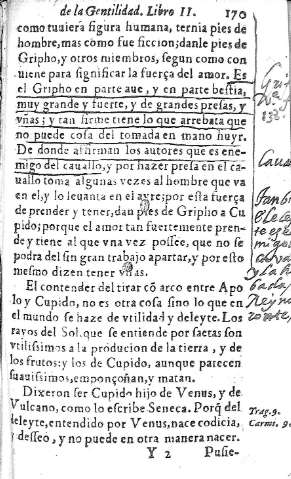 de la Gentilidad. Libro II. 170
como tuuiera figura humana, ternia pies de
hombre, mas como fue ficcion; danle pies de
Gripho, y otros miembros, segun como con
uiene para significar la fuerça del amor. Es
el Gripho en parte aue, y en parte bestia,
muy grande y fuerte, y de grandes presas, y
vñas; y tan firme tiene lo que arrebata que
no puede cosa del tomada en mano huyr.
De donde afirman los autores que es ene-
migo del cauallo, y por hazer presa en el ca
uallo toma algunas vezes al hombre que va
en el, y lo leuanta en el ayre; por esta fuerça
de prender y tener, dan pies de Gripho a Cu
pido; porque el amor tan fuertemente pren-
de y tiene al que vna vez possee, que no se
podra del sin gran trabajo apartar, y por esto
mesmo dizen tener vñas.
El contender del tirar cõ arco entre Apo
lo y Cupido, no es otra cosa sino lo que en
el mundo se haze de vtilidad y deleyte. Los
rayos del Sol, que se entiende por saetas son
vtilissimos a la producion de la tierra, y de
los frutos: y los de Cupido, aunque parecen
suauissimos, emponçoñan, y matan.
Dixeron ser Cupido hijo de Venus, y de
Vulcano, como lo escribe Seneca. Porq̃ del
deleyte, entendido por Venus, nace codicia,
y desseo, y no puede en otra manera nacer.
Trag. 9.
Carmi. 9.
Y 2 Pusie-